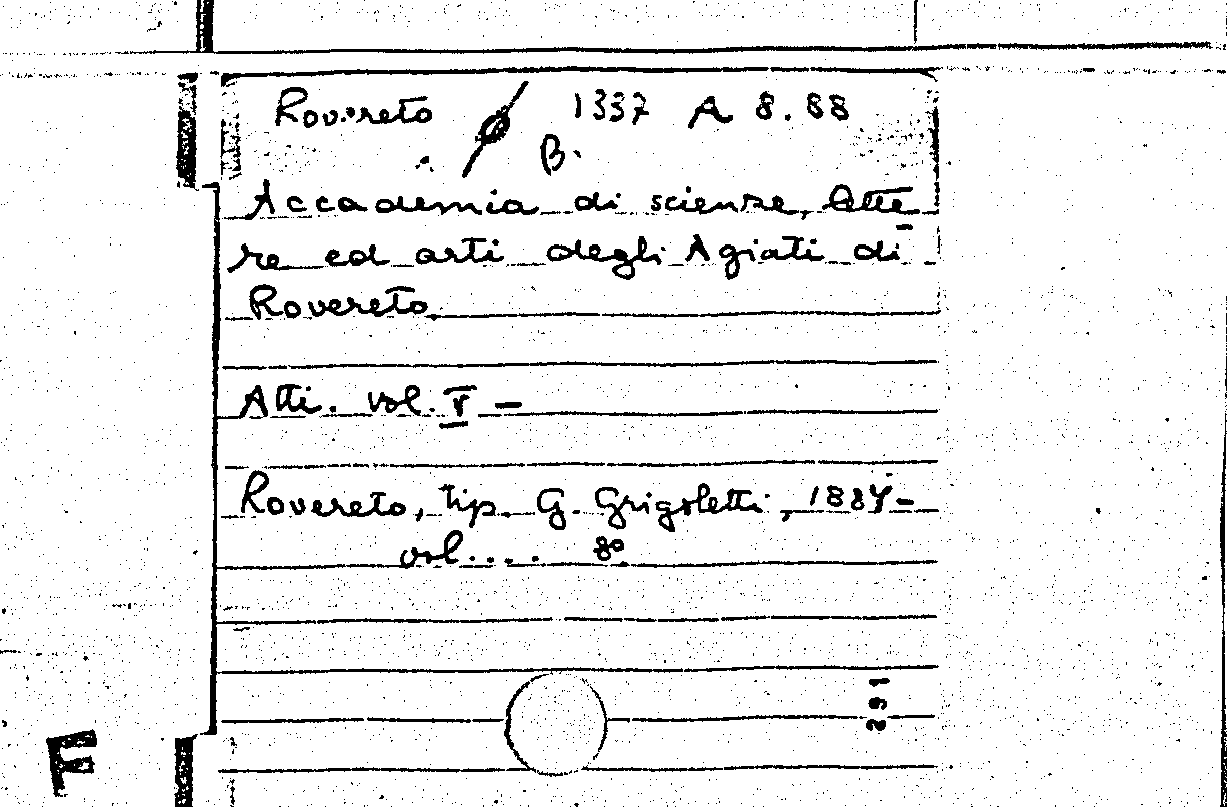 Rovereto 1337 A 8.88
B.
Accademia di scienze, lette
re ed arti degli Agiati di
Rovereto.
Atti. vol. V —
Rovereto, tip. G. Grigoletti, 1887-
vol.... 8°
291
F